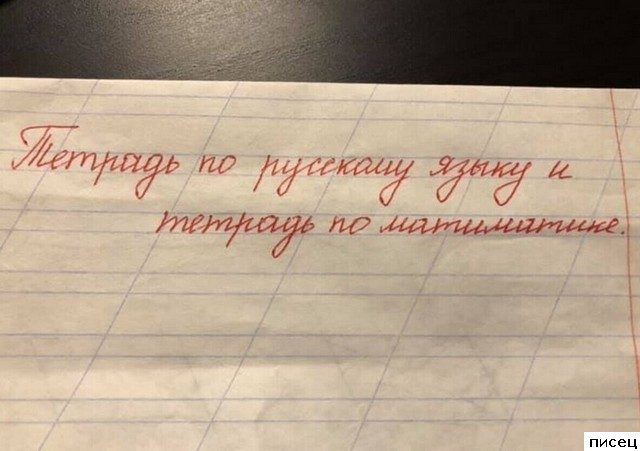 Тетрадь по русскому языку и
тетрадь по матиматике.
писец